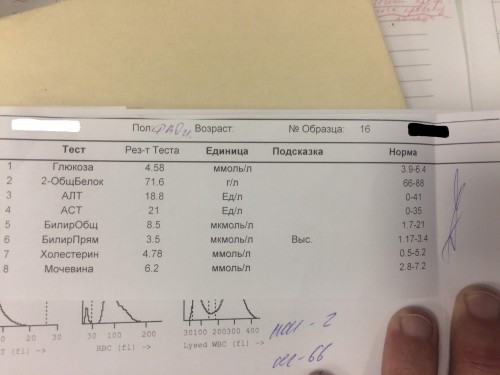 Пол: Возраст: № Образца: 16
Тест Рез-т Теста Единица Подсказка Норма
1 Глюкоза 4.58 ммоль/л 3.9-6.4
2 2-ОбщБелок 71.6 г/л 66-88
3 АЛТ 18.8 Ед/л 0-41
4 АСТ 21 Ед/л 0-35
5 БилирОбщ 8.5 мкмоль/л 1.7-21
6 БилирПрям 3.5 мкмоль/л Выс. 1.17-3.4
7 Холестерин 4.78 ммоль/л 0.5-5.2
8 Мочевина 6.2 ммоль/л 2.8-7.2
10 20 30 30 100 200 30100 200 300 400
T (fl) -> RBC (fl) -> Lysed WBC (fl) ->